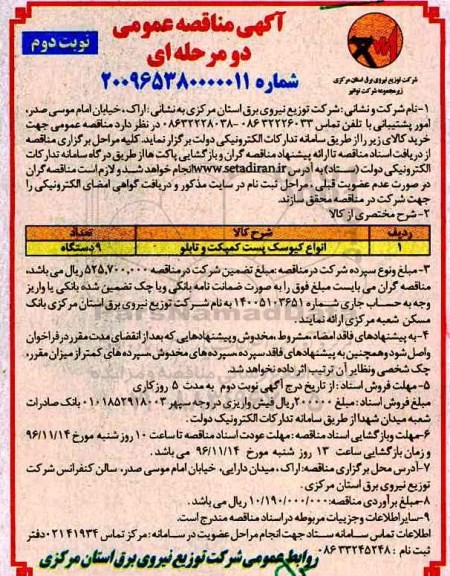 آگهی مناقصه عمومی
دو مرحله ای
نوبت دوم
شماره ۲۰۰۹۶۵۳۸۰۰۰۰۰۱۱
شرکت توزیع نیروی برق استان مرکزی
زیرمجموعه شرکت توانیر
۱-نام شرکت و نشانی : شرکت توزیع نیروی برق استان مرکزی به نشانی : اراک، خیابان امام موسی صدر،
امور پشتیبانی با تلفن تماس ۳۲۲۲۶۰۳۳ ۰۸۶ -۰۸۶۳۲۲۲۸۰۳۸ در نظر دارد مناقصه عمومی جهت
خرید کالای زیر را از طریق سامانه تدارکات الکترونیکی دولت برگزار نماید. کلیه مراحل برگزاری مناقصه
از دریافت اسناد مناقصه تا ارائه پیشنهاد مناقصه گران و بازگشایی پاکت ها از طریق درگاه سامانه تدارکات
الکترونیکی دولت (ستاد) به آدرس www.setadiran.ir انجام خواهد شد و لازم است مناقصه گران
در صورت عدم عضویت قبلی ، مراحل ثبت نام در سایت مذکور و دریافت گواهی امضای الکترونیکی را
جهت شرکت در مناقصه محقق سازند.
۲- شرح مختصری از کالا
ردیف شرح کالا تعداد
۱ انواع کیوسک پست کمپکت و تابلو ۹ دستگاه
۳- مبلغ و نوع سپرده شرکت در مناقصه :مبلغ تضمین شرکت در مناقصه ۵۲۵,۷۰۰,۰۰۰ ریال می باشد،
مناقصه گران می بایست مبلغ فوق را به صورت ضمانت نامه بانکی و یا چک تضمین شده بانکی یا واریز
وجه به حساب جاری شماره ۱۴۰۰۵۱۰۳۶۵۱ به نام شرکت توزیع نیروی برق استان مرکزی بانک
مسکن شعبه مرکزی ارائه نمایند .
۴- به پیشنهادهای فاقد امضاء، مشروط ،مخدوش و پیشنهادهایی که بعد از انقضای مدت مقرر در فراخوان
واصل شود و همچنین به پیشنهادهای فاقد سپرده ،سپرده های مخدوش، سپرده های کمتر از میزان مقرر،
چک شخصی و نظایر آن ترتیب اثر داده نخواهد شد.
۵- مهلت فروش اسناد : از تاریخ درج آگهی نوبت دوم به مدت ۵ روز کاری
مبلغ فروش اسناد : مبلغ ۲۰۰۰۰۰ ریال فیش واریزی در وجه سپهر ۰۱۰۱۸۵۲۹۱۸۰۰۳ بانک صادرات
شعبه میدان شهدا از طریق سامانه تدارکات الکترونیک دولت .
۶-مهلت و بازگشایی اسناد مناقصه : مهلت عودت اسناد مناقصه تا ساعت ۱۰ روز شنبه مورخ ۹۶/۱۱/۱۴
و زمان بازگشایی ساعت ۱۳ روز شنبه مورخ ۹۶/۱۱/۱۴ می باشد .
۷-آدرس محل برگزاری مناقصه:اراک ، میدان دارایی، خیابان امام موسی صدر، سالن کنفرانس شرکت
توزیع نیروی برق استان مرکزی.
۸-مبلغ برآوردی مناقصه:۱۰/۱۹۰/۰۰۰/۰۰۰ ریال می باشد .
۹-سایر اطلاعات و جزییات مربوطه در اسناد مناقصه مندرج است.
اطلاعات تماس سامانه ستاد جهت انجام مراحل عضویت در سامانه : مرکز تماس ۴۱۹۳۴ ۰۲۱ دفتر
ثبت نام : ۳۳۲۴۵۲۴۸ ۰۸۶
روابط عمومی شرکت توزیع نیروی برق استان مرکزی